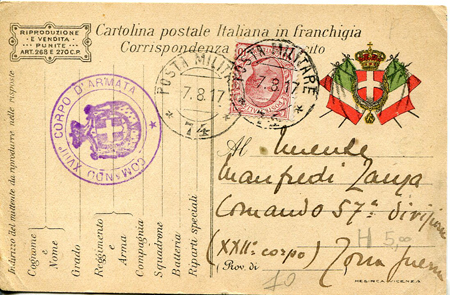 RIPRODUZIONE
E VENDITA
PUNITE
ART. 268 E 270 C.P.
Cartolina postale Italiana in franchigia
Corrispondenza
POSTA MILITARE
7.8.17
74
POSTA MILITARE
7.8.17
XVIII° CORPO D'ARMATA
Indirizzo del mittente da riprodurre nelle risposte
Cognome e Nome
Grado
Reggimento e Arma
Compagnia
Squadrone
Batteria
Riparti speciali
Al
Manfredi
Comando 57ª Divisione
(XXII° corpo) Zona guerra
Prov. di
H 5,00